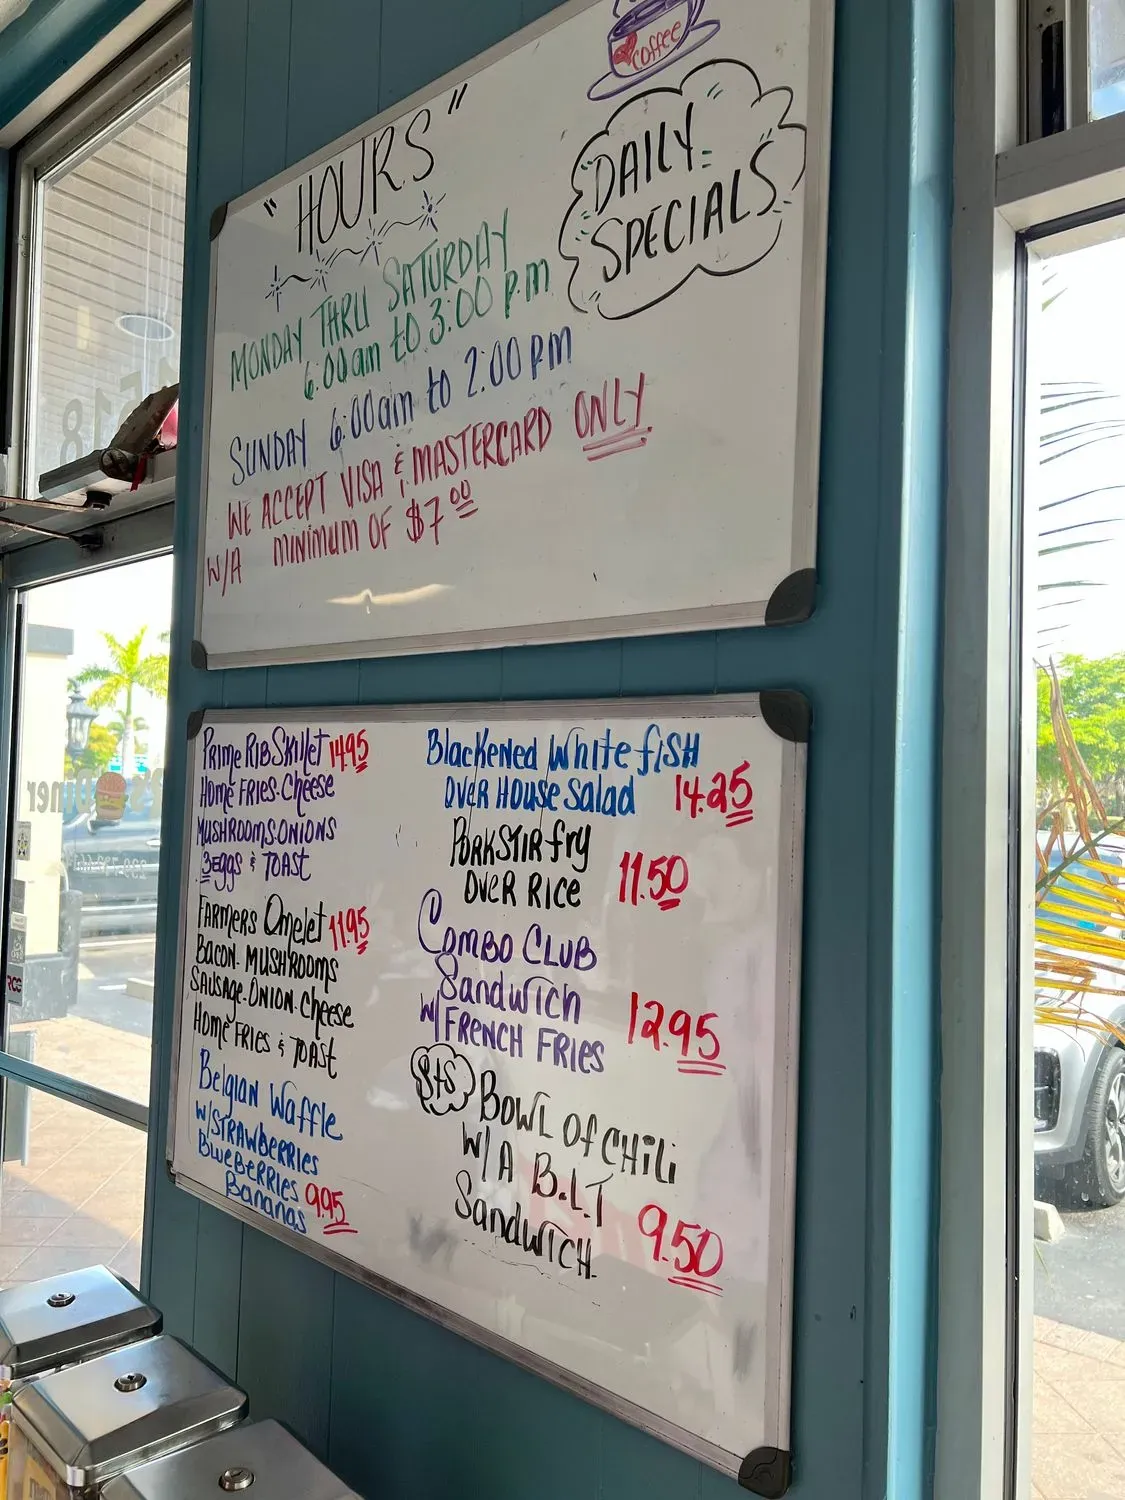 Coffee
"HOURS"
DAILY
SPECIALS
MONDAY THRU SATURDAY
6:00am to 3:00 p.m
SUNDAY 6:00am to 2:00 pm
WE ACCEPT VISA & MASTERCARD ONLY
W/A minimum OF $7.00
Prime Rib Skillet 14.95
Home Fries. Cheese
Mushrooms. Onions
3 eggs & Toast
Farmers Omelet 11.95
Bacon. Mushrooms
Sausage. Onion. Cheese
Home Fries & Toast
Belgian Waffle
w/Strawberries
Blueberries
Bananas 9.95
Blackened White fish
over House Salad 14.25
Pork Stir fry
over Rice 11.50
Combo Club
Sandwich
w/ French Fries 12.95
Bowl of Chili
w/ A B.L.T
Sandwich 9.50
Diner